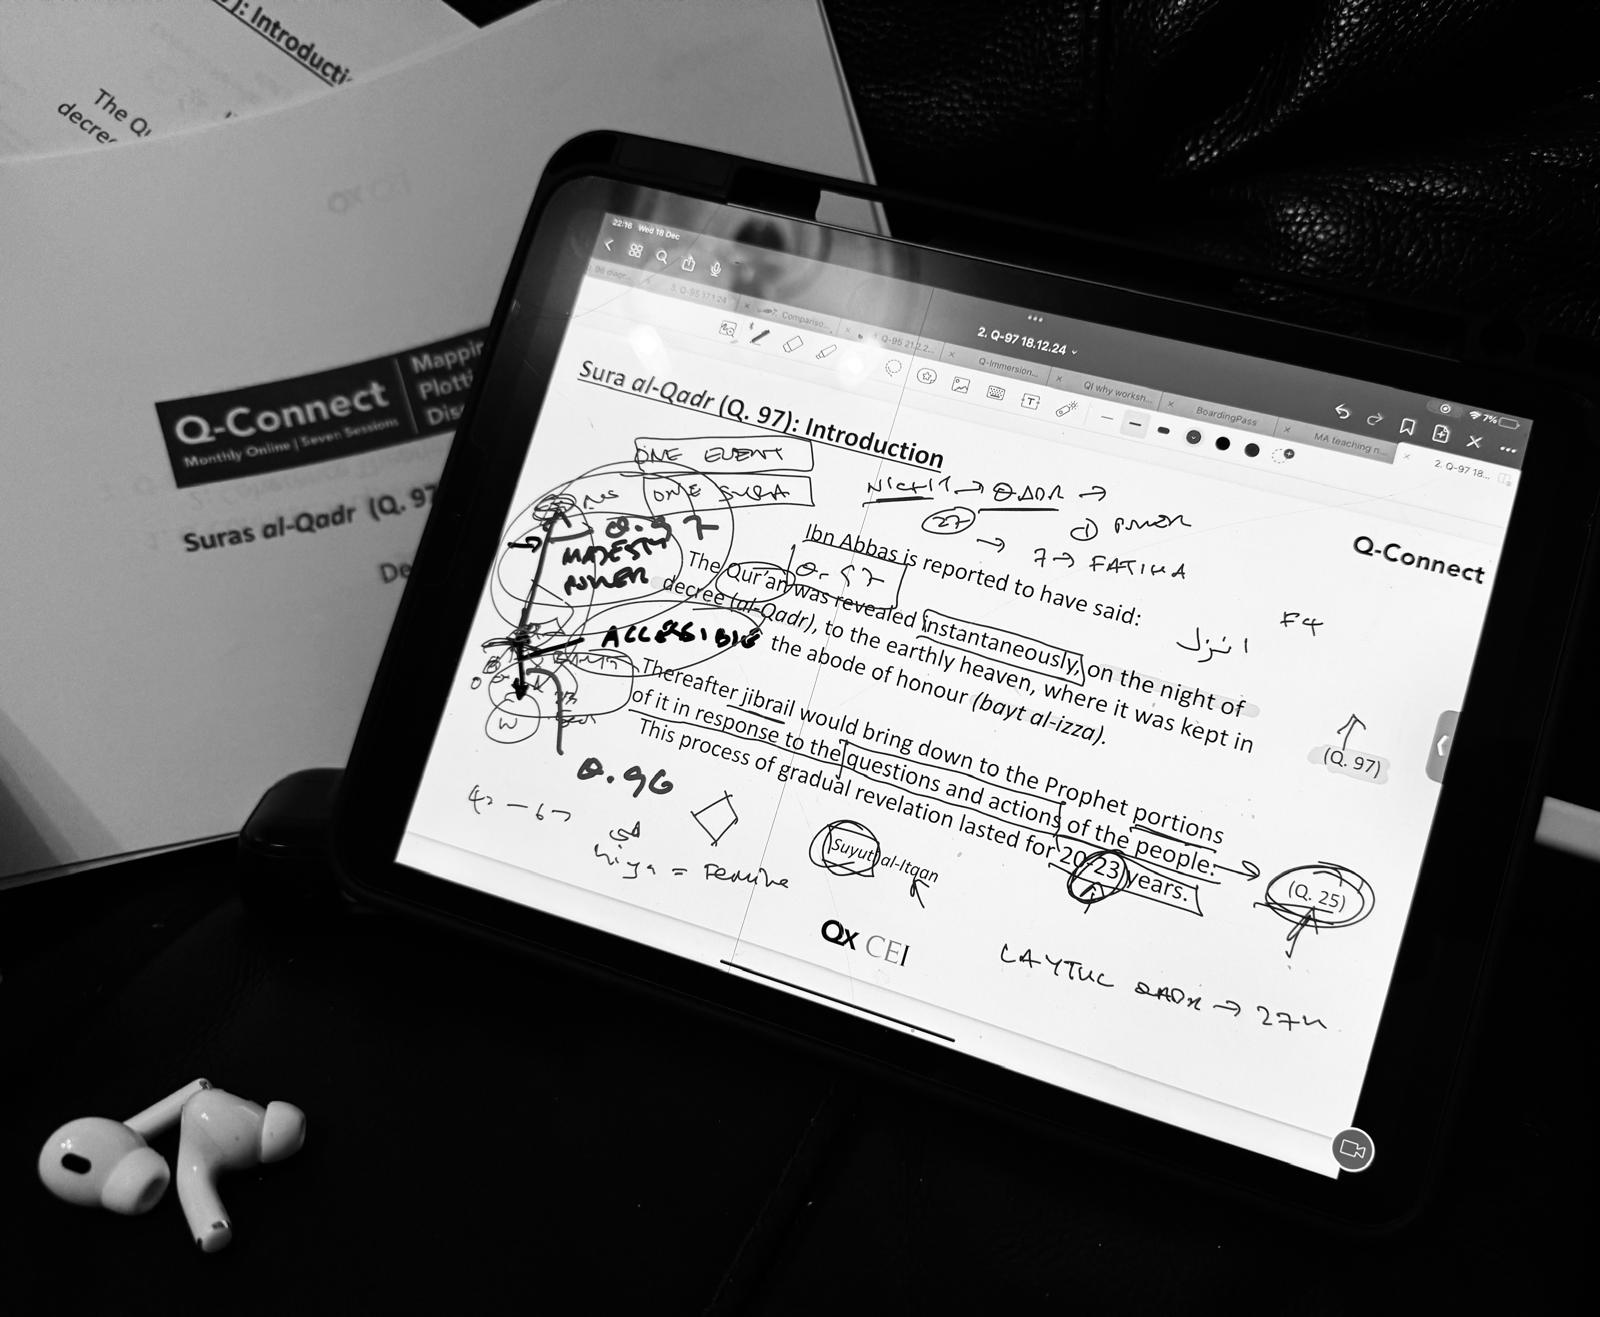 ): Introducti
The Qu
decree
QX CEI
Q-Connect
Monthly Online | Seven Sessions
Mappin
Plotti
Dis
Suras al-Qadr (Q. 97
De
22:16 Wed 18 Dec
2. Q-97 18.12.24
7%
3. Q-95 17.1.24
Compariso...
Q-95 21.2.2...
Q-Immersion...
QI why worksh...
BoardingPass
MA teaching n...
2. Q-97 18...
Sura al-Qadr (Q. 97): Introduction
ONE EVENT
ONE SURA
→ QADR →
27
① POWER
→ 7 → FATIHA
Q-Connect
Q. 97
MAJESTY
POWER
Ibn Abbas is reported to have said:
The Qur'an was revealed instantaneously, on the night of
decree (al-Qadr), to the earthly heaven, where it was kept in
the abode of honour (bayt al-izza).
انزل
(Q. 97)
ACCESSIBLE
Thereafter jibrail would bring down to the Prophet portions
of it in response to the questions and actions of the people:
This process of gradual revelation lasted for 20-23 years.
(Q. 25)
W
Q. 96
Suyuti al-Itqan
QX CEI
QADR → 27